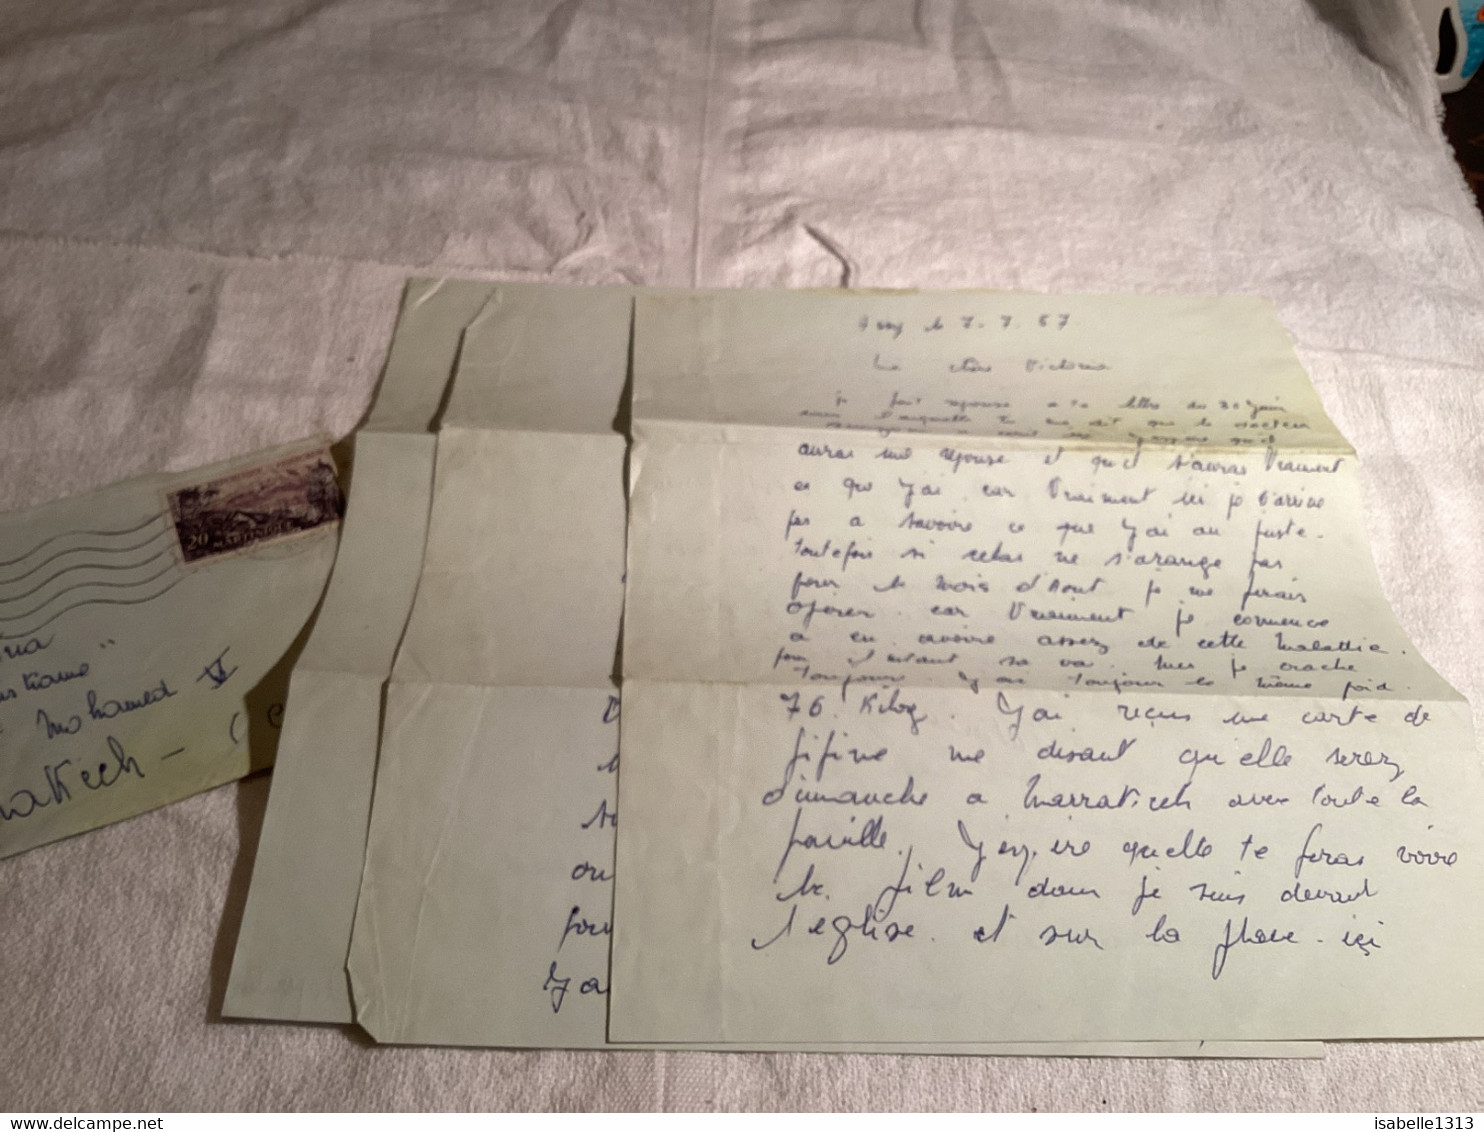 le 7.7.57
Victoria
je fait reponse a ta lettre du 30 juin
dans laquelle tu me dit que le docteur
auras une reponse et qu'il s'auras Vraiment
ce que j'ai car Vraiment ici je n'arrive
pas a savoire ce que j'ai au juste.
toutefois si celas ne s'arange pas
pour le mois d'Aout je me ferais
operer. car Vraiment je commence
a en avoire assez de cette Malattie.
pour l'instant sa va. mes je crache
toujours. j'ai toujour le même poid.
76. Kilog. j'ai reçus une carte de
fifine me disant qu'elle serez
dimanche a Marrakech avec toute la
famille. j'espere quelle te feras voire
le film dont je suis devant
l'eglise. et sur la place. içi
ou
pour
ja
20
MARTINIQUE
Mohamed V
Delcampe.net
isabelle1313